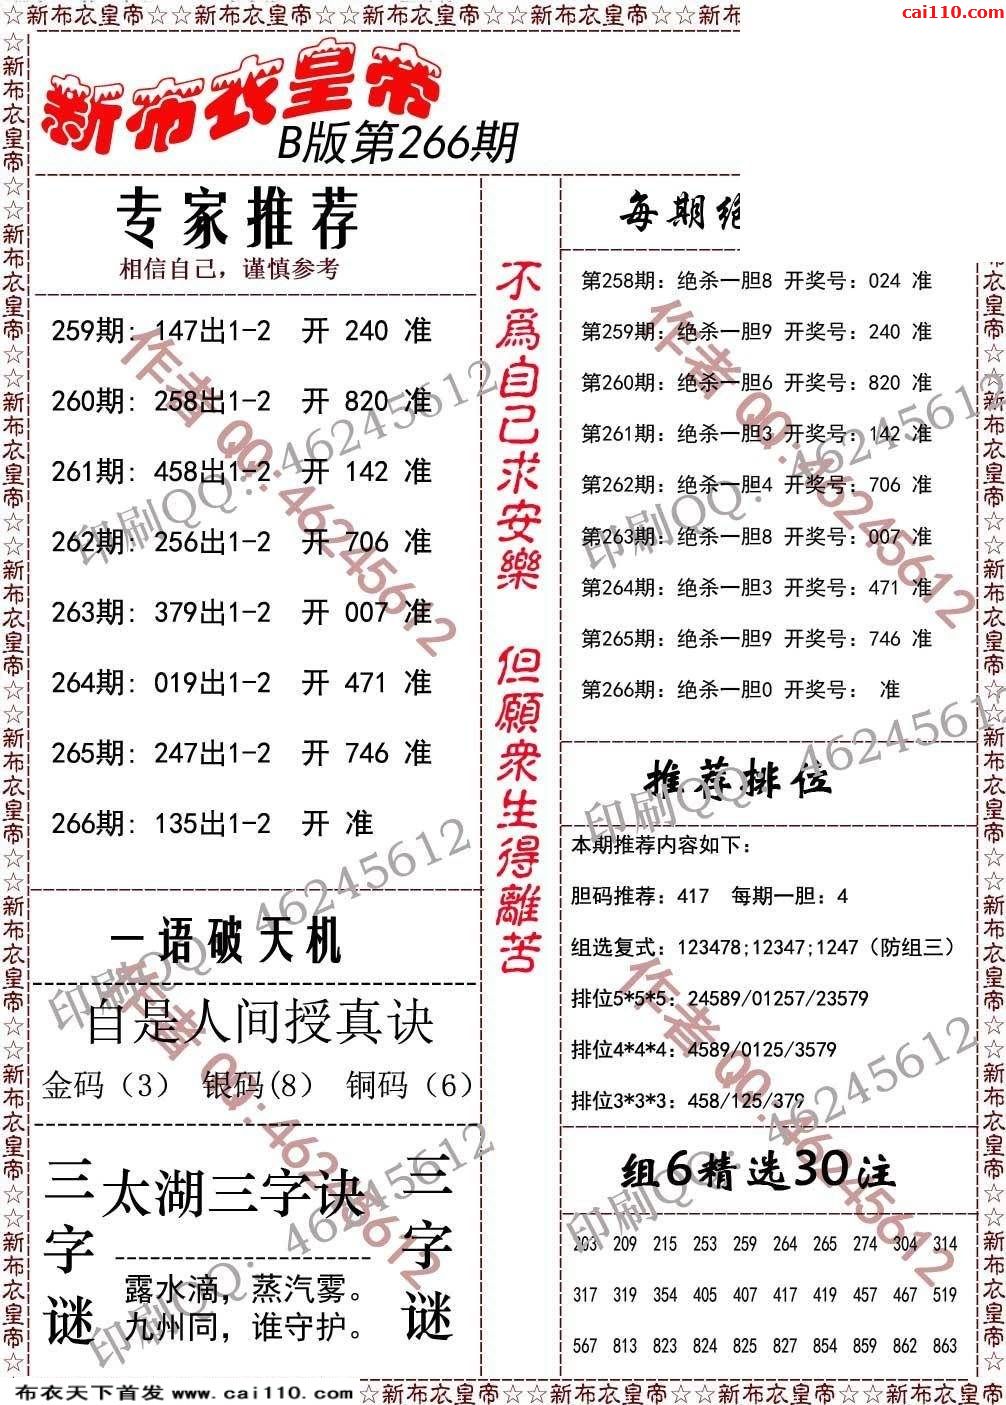 ☆新布衣皇帝☆☆新布衣皇帝☆☆新布衣皇帝☆☆新布衣皇帝☆☆新布
cai110.com
新布衣皇帝
B版第266期
专家推荐
相信自己，谨慎参考
259期: 147出1-2 开 240 准
260期: 258出1-2 开 820 准
261期: 458出1-2 开 142 准
262期: 256出1-2 开 706 准
263期: 379出1-2 开 007 准
264期: 019出1-2 开 471 准
265期: 247出1-2 开 746 准
266期: 135出1-2 开 准
一语破天机
自是人间授真诀
金码（3） 银码(8） 铜码（6）
三字谜
太湖三字诀
露水滴，蒸汽雾。
九州同，谁守护。
三字谜
不為自己求安樂 但願衆生得離苦
每期绝
第258期：绝杀一胆8 开奖号：024 准
第259期：绝杀一胆9 开奖号：240 准
第260期：绝杀一胆6 开奖号：820 准
第261期：绝杀一胆3 开奖号：142 准
第262期：绝杀一胆4 开奖号：706 准
第263期：绝杀一胆8 开奖号：007 准
第264期：绝杀一胆3 开奖号：471 准
第265期：绝杀一胆9 开奖号：746 准
第266期：绝杀一胆0 开奖号： 准
推荐排位
本期推荐内容如下：
胆码推荐：417 每期一胆：4
组选复式：123478;12347;1247（防组三）
排位5*5*5：24589/01257/23579
排位4*4*4：4589/0125/3579
排位3*3*3：458/125/379
组6精选30注
203 209 215 253 259 264 265 274 304 314
317 319 354 405 407 417 419 457 467 519
567 813 823 824 825 827 854 859 862 863
作者 QQ:46245612
印刷QQ：46245612
作者 QQ:46245612
印刷QQ：46245612
印刷QQ：46245612
印刷QQ：46245612
作者 QQ:46245612
作者 QQ:46245612
印刷QQ：46245612
印刷QQ：46245612
布衣天下首发 www.cai110.com
☆新布衣皇帝☆☆新布衣皇帝☆☆新布衣皇帝☆☆新布衣皇帝☆